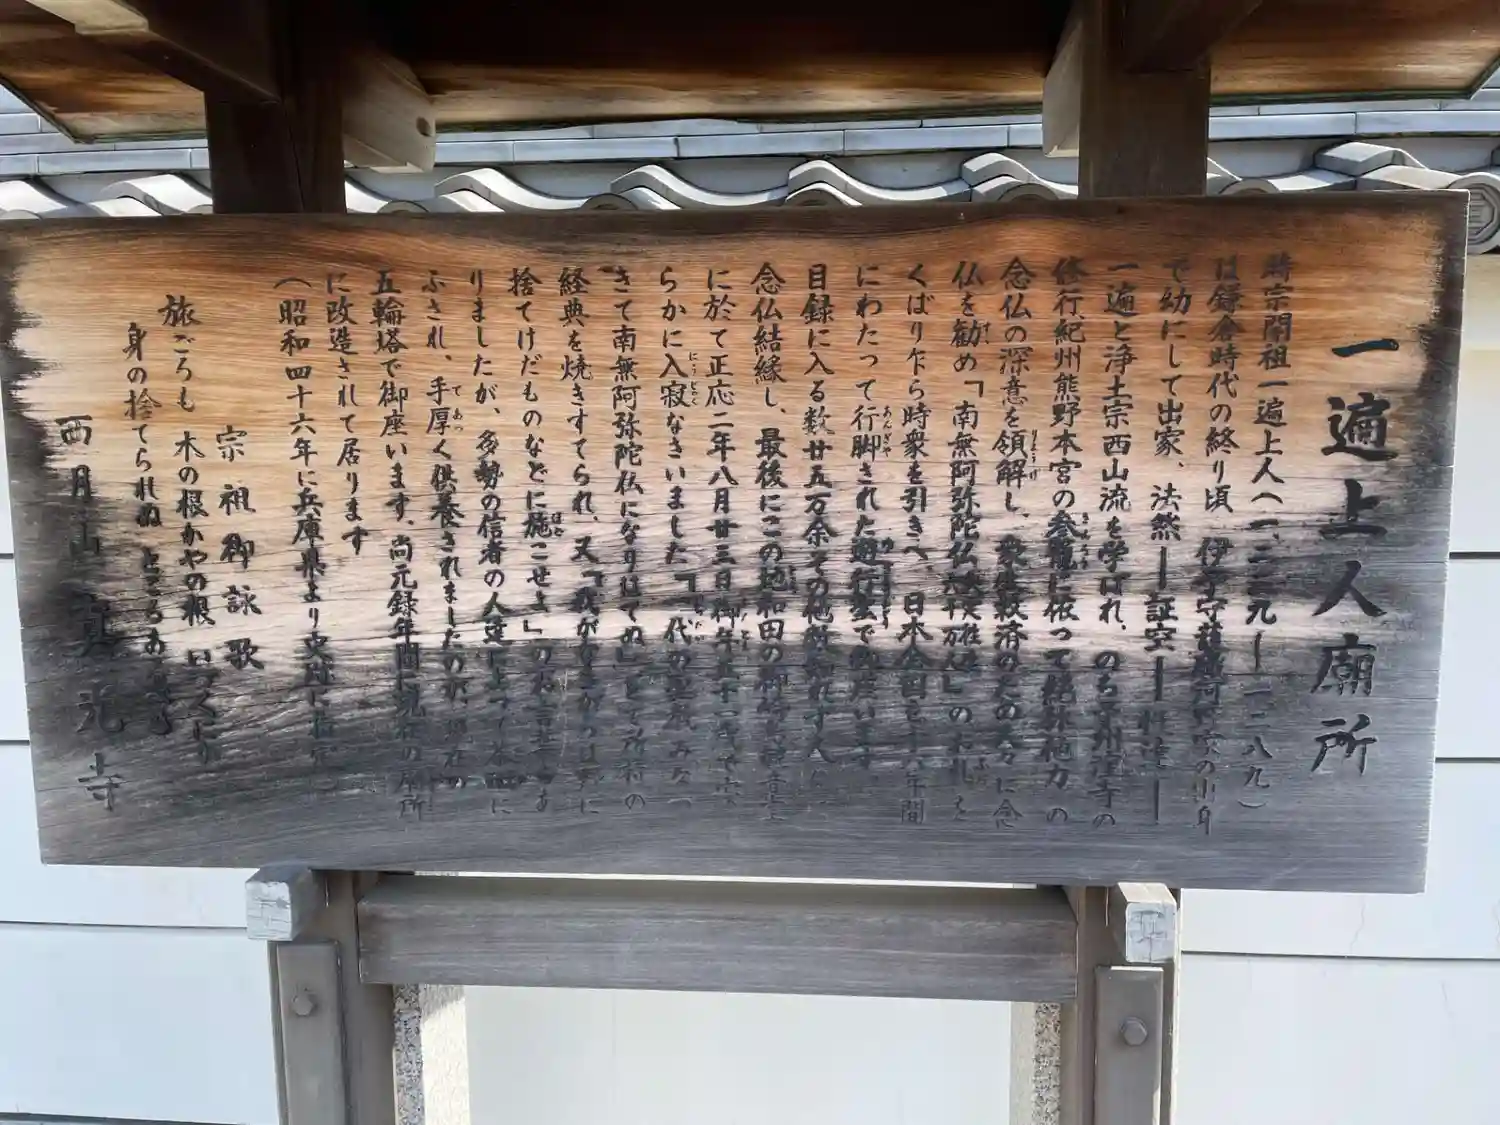 一遍上人廟所
時宗開祖一遍上人(一二三九―一二八九)
は鎌倉時代の終り頃、伊予守護河野家の出身
で幼にして出家、法然―証空―
一遍と浄土宗西山流を学ばれ、のち
修行、紀州熊野本宮の参籠に依って絶対他力の
念仏の深意を領解し、衆生救済のため
仏を勧め「南無阿弥陀仏決定往生」のお札を
くばり乍ら時衆を引きつれ、日本全国を十六年間
にわたって行脚された遊行
目録に入る数廿五万余その他数知れず
念仏結縁し、最後にこの地和田の御崎の観音堂
に於て正応二年八月廿三日御年五十一歳で
らかに入寂なさいました「一代の聖教みなつ
きて南無阿弥陀仏になりはてぬ」として所持の
経典を焼きすてられ、又「我が
捨てけだものなどに施こせよ」の
りましたが、多勢の信者の人達によって
ふされ、手厚く供養されましたのが、現在の
五輪塔で御座います、尚元録年間に現在の廟所
に改造されて居ります
(昭和四十六年に兵庫県より史跡に指定)
宗祖御詠歌
旅ごろも 木の根かやの根 いづくにか
身の捨てられぬ ところあるべき
西月山真光寺